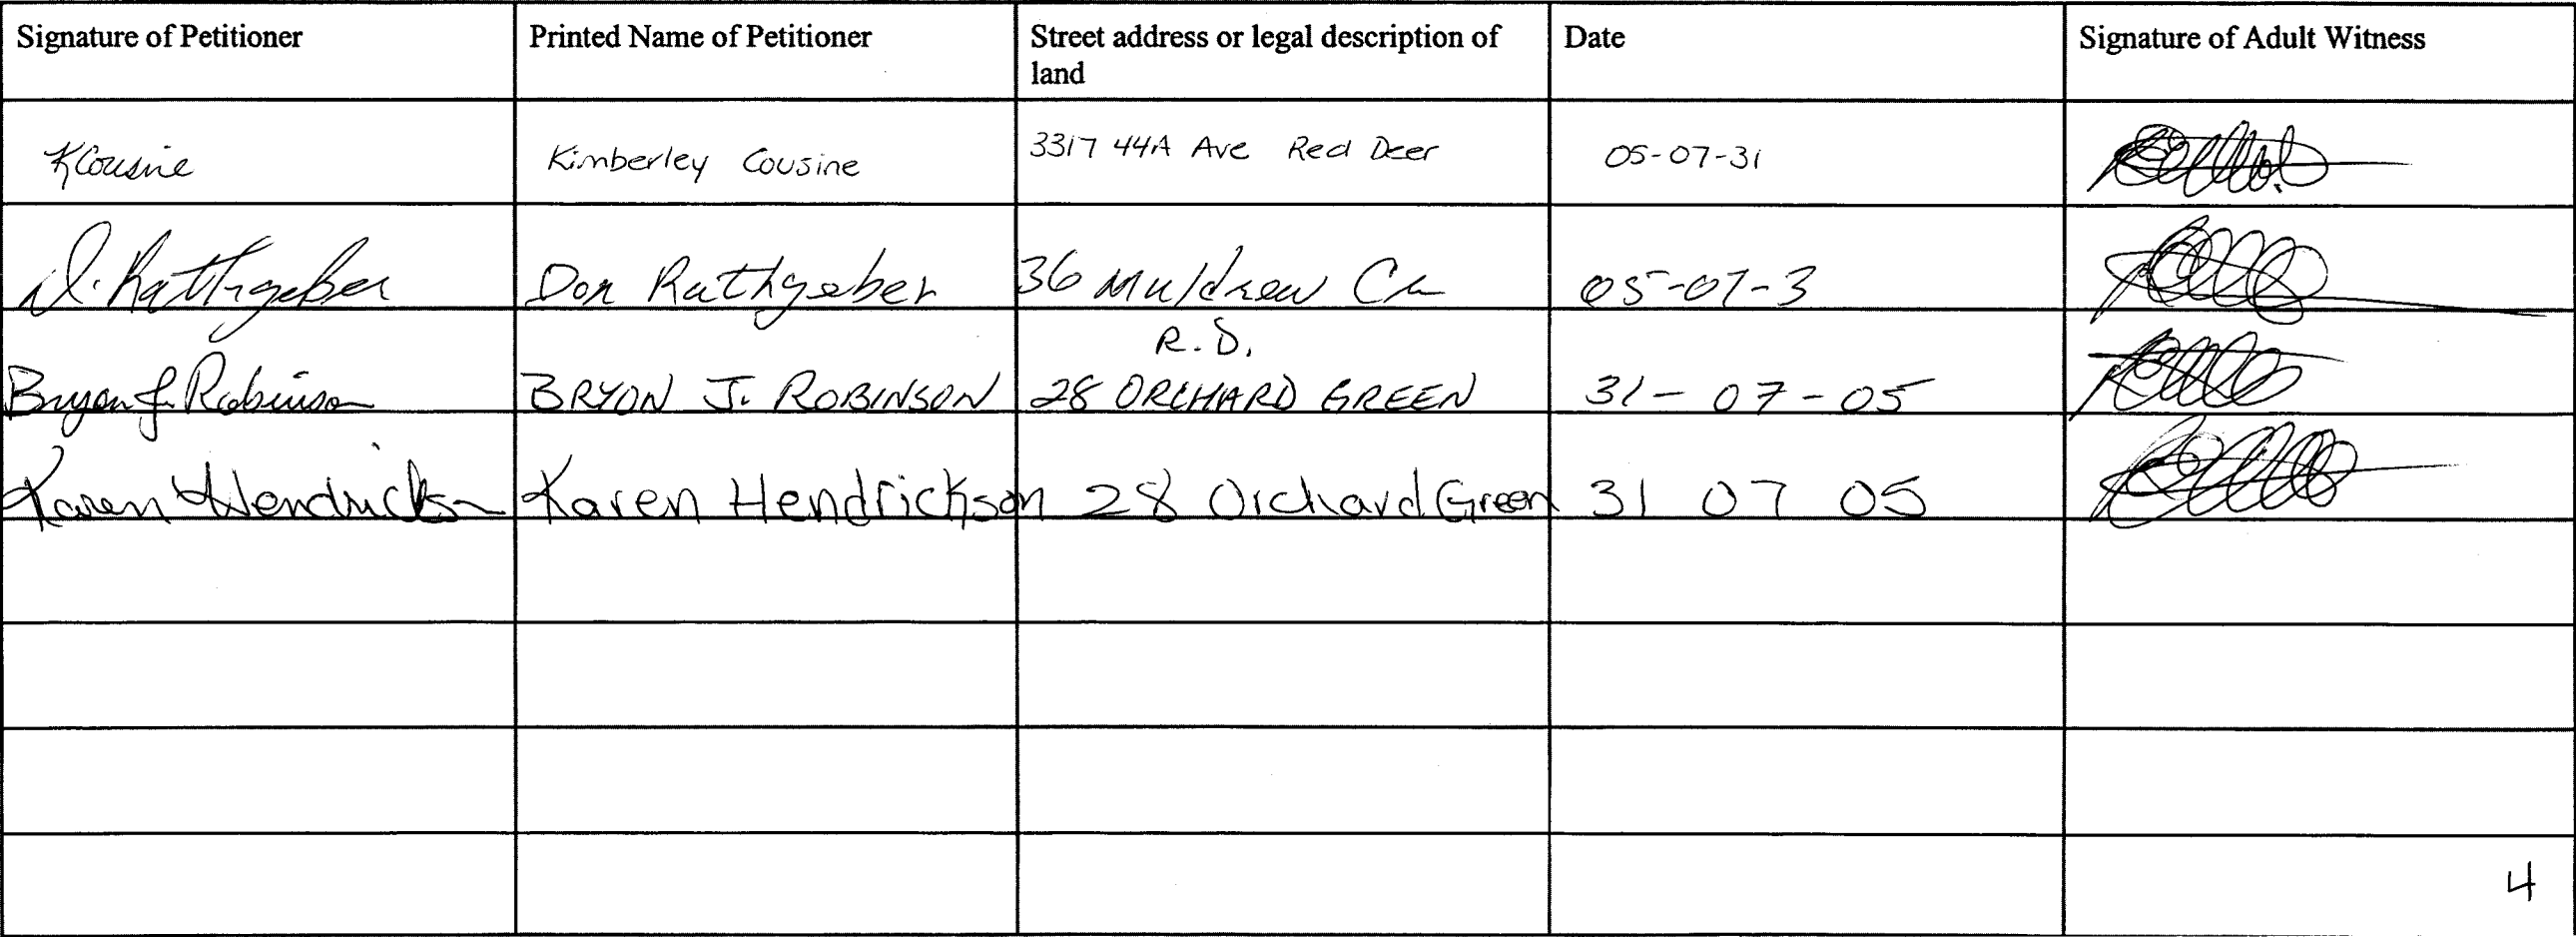 Signature of Petitioner Printed Name of Petitioner Street address or legal description of Date Signature of Adult Witness
land
KCousine Kimberley Cousine 3317 44A Ave Red Deer 05-07-31
D. Rathgeber Don Rathgeber 36 Muldrew Cr 05-07-3
R.D.
Bryon J. Robinson BRYON J. ROBINSON 28 ORCHARD GREEN 31-07-05
Karen Hendrickson Karen Hendrickson 28 Orchard Green 31 07 05
4